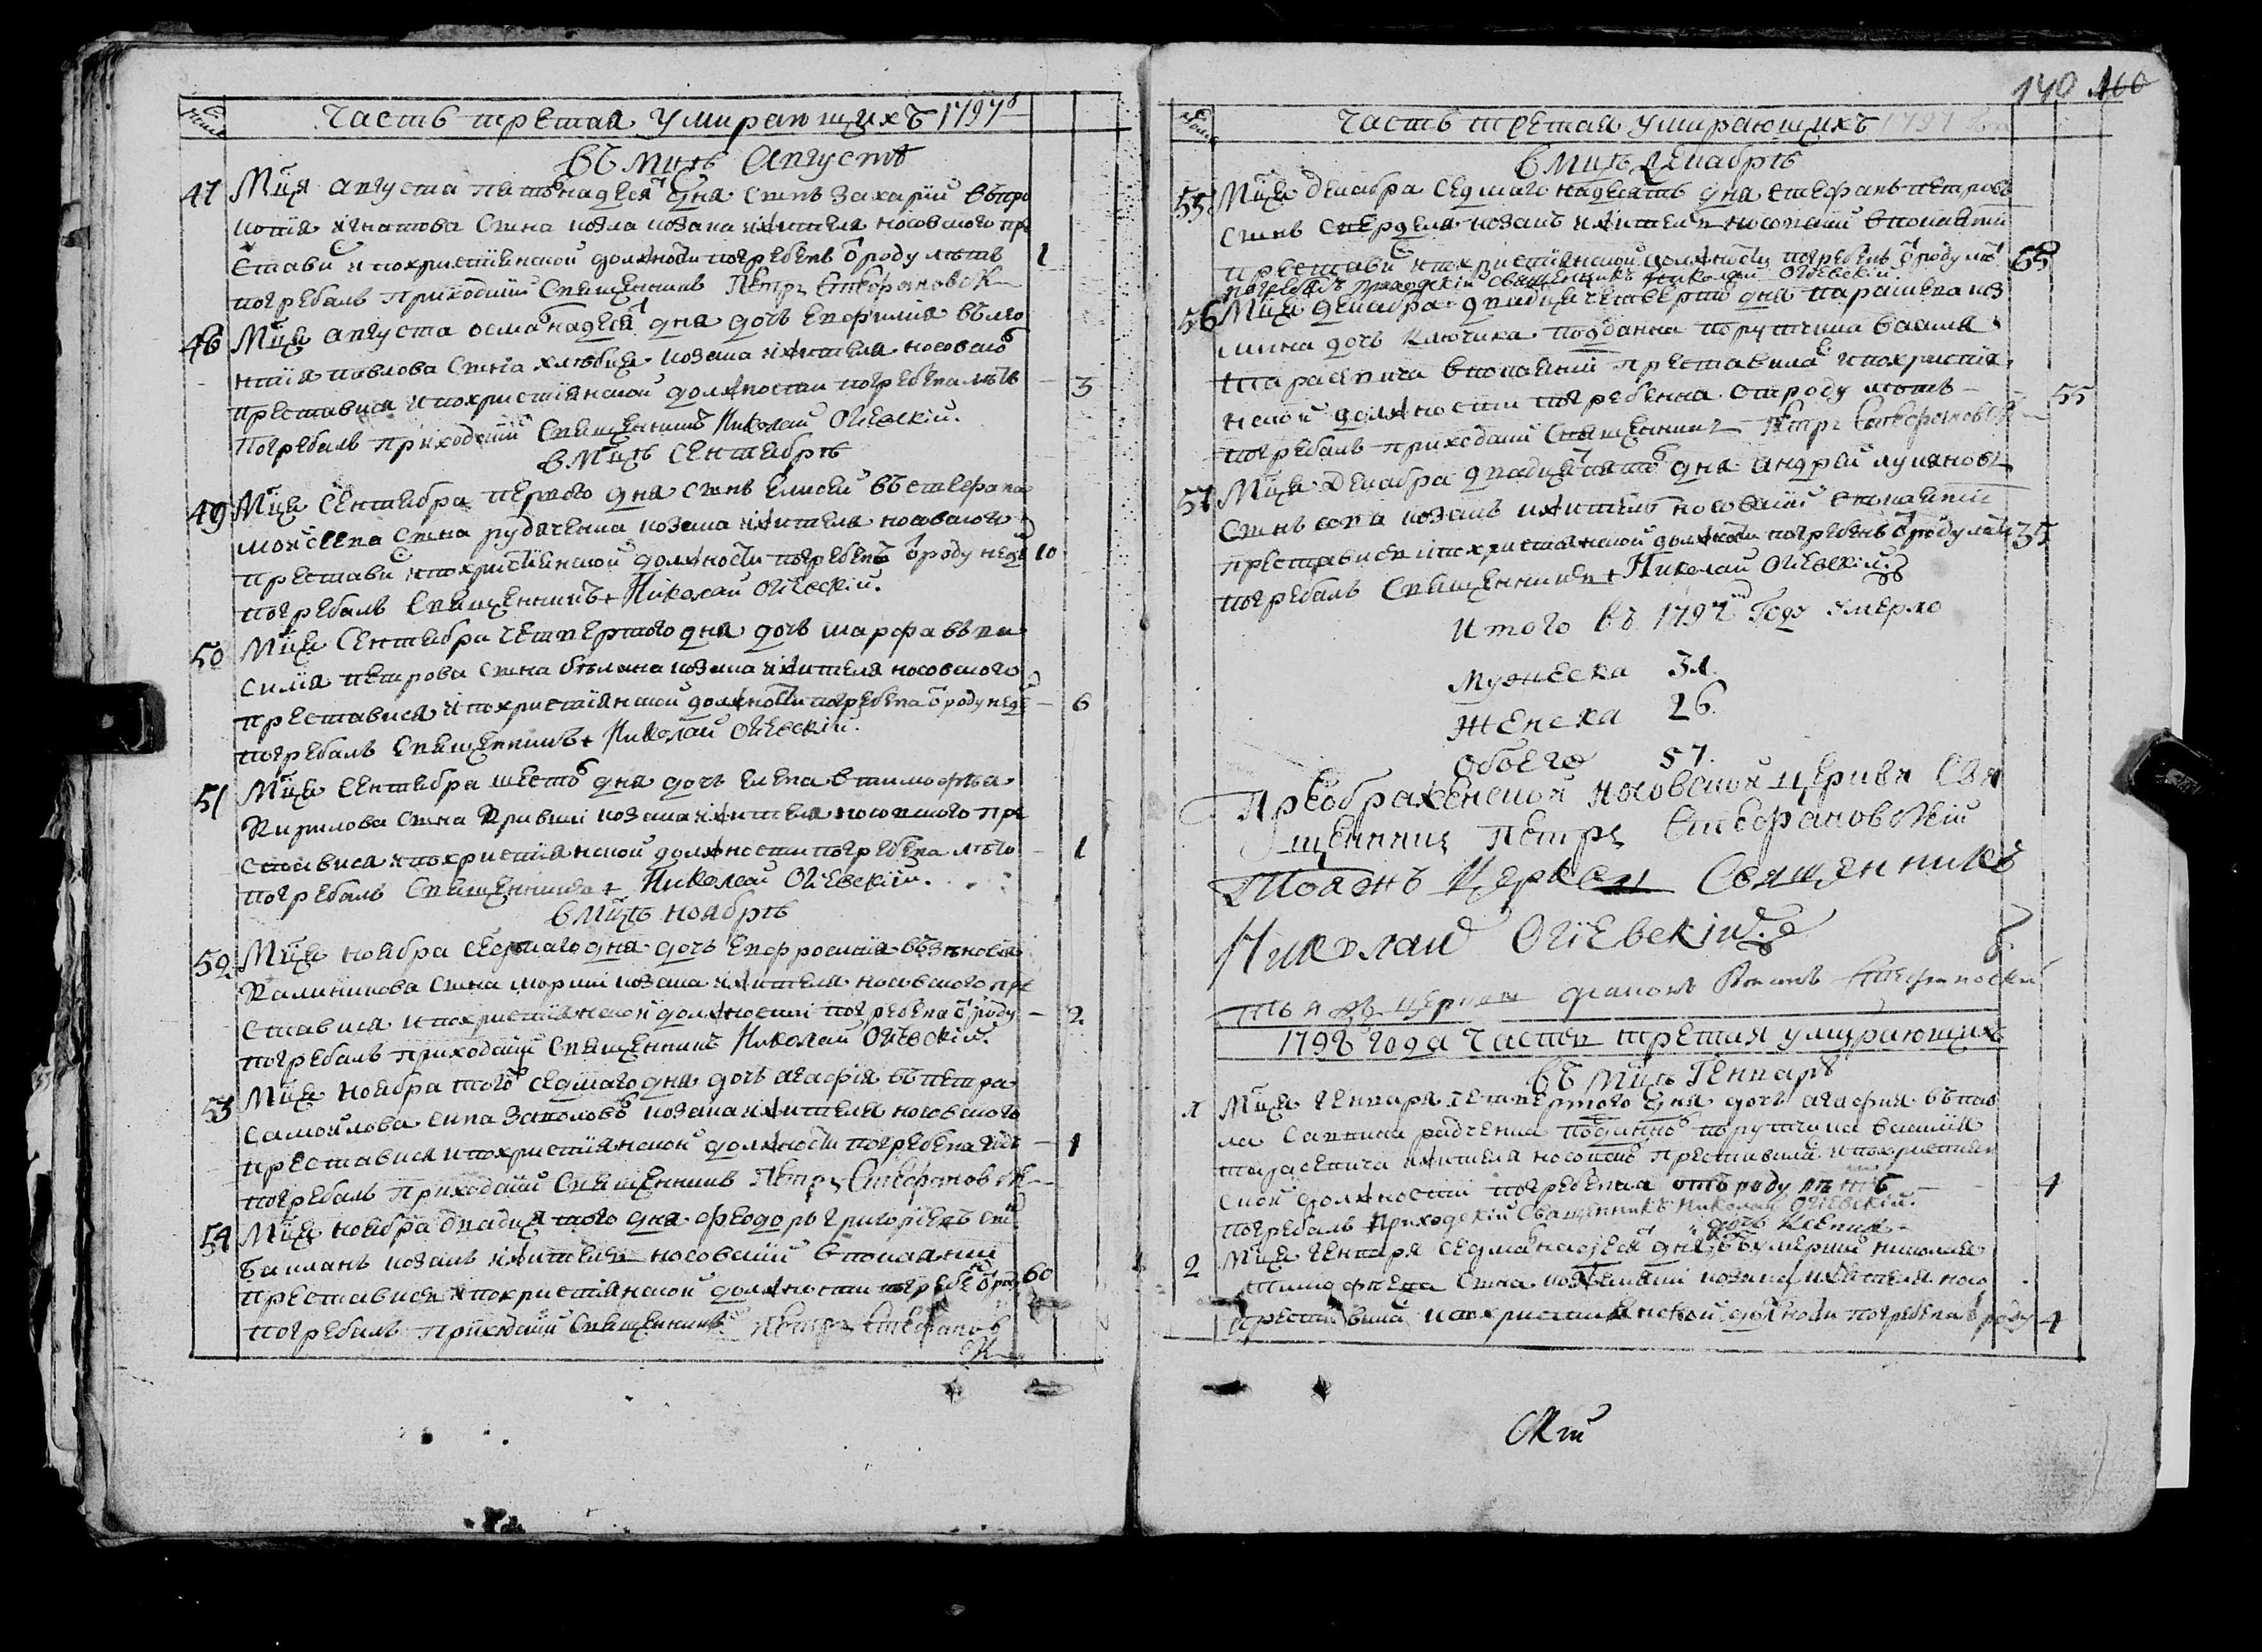 Часть третая умирающихъ 1797
въ мцѣ Августѣ
47 Мця августа пятнадеся дня снъ Захарій въ тро
Игнатова сна козла козака жителя носовского пре
стави и похристіянской должности погребенъ ѿ роду лѣтъ 1
погребалъ приходскій священникъ Петръ Стефановск
48 Мця августа османадеся дня дочь Евфимія въ иго
натія павлова сна хлѣбця козака жителя носовско
преставися и похристіянской должности погребена лѣтъ - 3
Погребалъ приходскій священникъ Николай Огіевскій.
в Мцѣ Сентябрѣ
49 Мця Сентября первого дня снъ Елисей въ стефана
мойсеева сна рудченка козака жителя носовского
престави и похристіянской должности погребенъ ѿ роду неде 10
погребалъ священникъ Николай Огіевскій.
50 Мця Сентября четвертого дня дочь марфа въ ва
силія петрова сна бѣлана козака жителя носовского
преставися и похристіянской должности погребена ѿ роду неде - 6
погребалъ священникъ Николай Огіевскій.
51 Мця Сентября шесто дня дочь елена в тимофѣа
Кирилова сна Кривий козака жителя носовского пре
ставися и похристіянской должности погребена лѣто - 1
погребалъ священникъ Николай Огіевскій.
в Мцѣ ноябрѣ
52 Мця ноября седмаго дня дочь Евфросинія въ зѣновія
Калиникова сна козака жителя носовского пре
ставися и похристіянской должности погребена ѿ роду - 2
погребалъ приходскій священникъ Николай Огіевскій.
53 Мця ноября того седмаго дня дочь агафія въ петра
Самойлова сина козака жителя носовского
преставися и похристіянской должности погребена - 1
погребалъ Приходскій священникъ Петръ Стефановск
54 Мця ноября двадцятого дня феодоръ григоріевъ снъ
козакъ жителъ носовскій в покаяніи
преставися и похристіянской должности погребе ѿ роду 60
погребалъ приходскій священникъ Петръ Стефанов
ск
140 160
Часть третая умирающихъ 1797
в Мцѣ декабрѣ
55 Мця декабря седмаго надесять дня стефанъ петровъ
снъ козакъ жителъ носовскій в покаяніи
престави и похристіянской должности погребенъ ѿ роду лѣ 65
погребалъ приходскій священникъ Николай Огіевскій.
56 Мця декабря двадцять четвертій дня параскева
дочь Ключика подданка поручика василя
тарасевича в покаяніи преставила и похристія
нской должности погребенна отроду лѣтъ - 55
погребалъ приходскій священникъ Петръ Стефановск
57 Мця Декабря дня андрей лукяновъ
снъ козакъ жителъ носовскій в покаяніи
преставися и похристіянской должности погребенъ ѿ роду лѣтъ 35
погребалъ священникъ Николай Огіевскій.
Итого въ 1797 Году умерло
Мужеска 31.
Женска 26.
Обоего 57.
Преображенской носовской церкви Свя
щенникъ Петръ Стефановскій
Тояжъ Церкви Священникъ
Николай Огіевскій.
тоя жъ церкви дяконъ
1798 года часть третая умирающихъ
въ мцѣ Генварѣ
1 Мця Генваря четвертого дня дочь агафия въ пав
ла подданно поручика василія
тарасевича жителя носовско преставила и похристиян
ской должности погребенна отъ роду - 1
погребалъ Приходскій Священникъ Николай Огіевскій.
дочь
2 Мця Генваря дня въ николая
тимофеева сна козака жителя носо
преставила и похристиянской должности погребена ѿ роду 1
ский